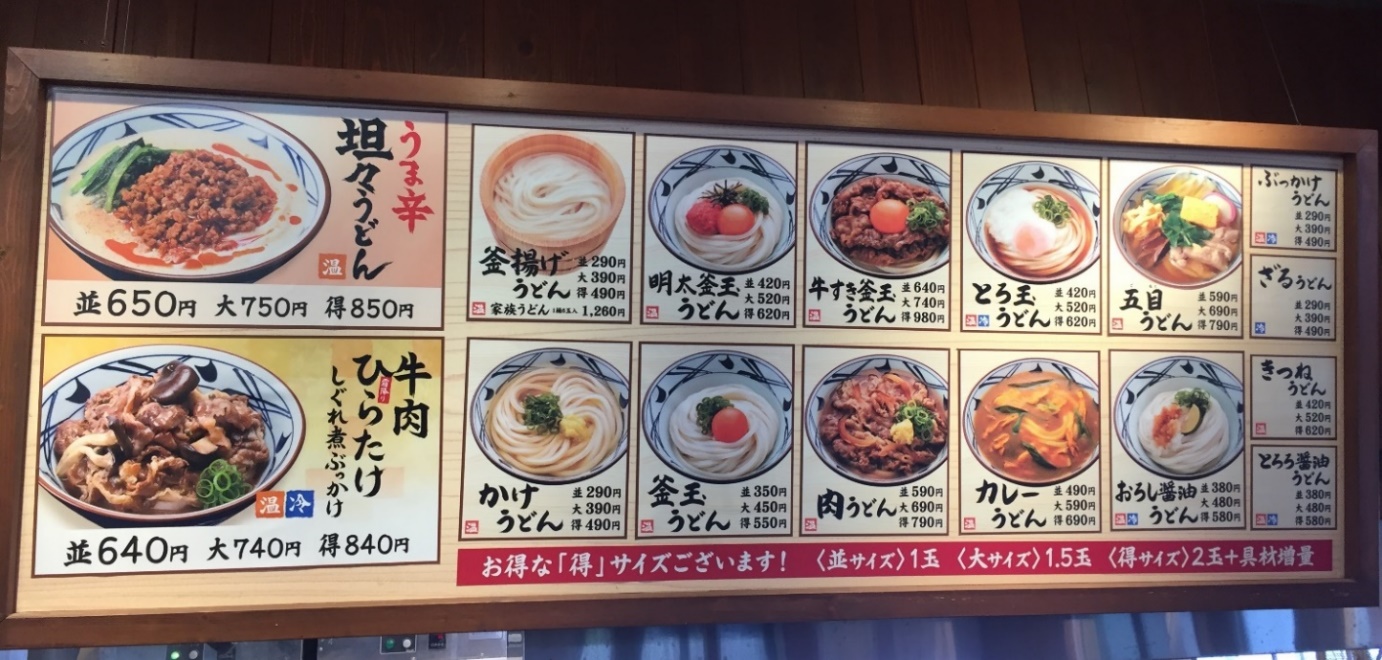 うま辛
坦々うどん
温
並650円 大750円 得850円
牛肉
ひらたけ
しぐれ煮ぶっかけ
温 冷
並640円 大740円 得840円
釜揚げ
うどん
並290円
大390円
得490円
温 家族うどん 1,260円
明太釜玉
うどん
並420円
大520円
得620円
温
牛すき釜玉
うどん
並640円
大740円
得980円
温
とろ玉
うどん
並420円
大520円
得620円
温 冷
五目
うどん
並590円
大690円
得790円
温
ぶっかけ
うどん
並290円
大390円
得490円
温 冷
ざるうどん
並290円
大390円
得490円
冷
かけ
うどん
並290円
大390円
得490円
温
釜玉
うどん
並350円
大450円
得550円
温
肉うどん
並590円
大690円
得790円
温
カレー
うどん
並490円
大590円
得690円
温
おろし醤油
うどん
並380円
大480円
得580円
温 冷
きつね
うどん
並420円
大520円
得620円
温
とろろ醤油
うどん
並380円
大480円
得580円
温 冷
お得な「得」サイズございます! 〈並サイズ〉1玉 〈大サイズ〉1.5玉 〈得サイズ〉2玉+具材増量